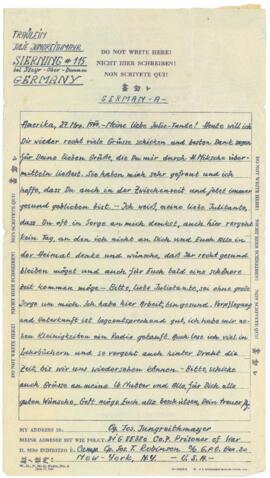 FRÄULEIN
JULIE JUNGREITHMAYR
SIERNING #115
bei Steyr - Ober-Donau
GERMANY
DO NOT WRITE HERE!
NICHT HIER SCHREIBEN!
NON SCRIVETE QUI!
GERMAN -A-
Amerika, 27. Nov. Meine liebe Julie-Tante! Heute will ich
Dir wieder recht viele Grüsse schicken und besten Dank sagen
für Deine lieben Grüße, die Du mir durch H. Miksche über-
mitteln ließest. Sie haben mich sehr gefreut und ich
hoffe, dass Du auch in der Zwischenzeit und jetzt immer
gesund geblieben bist. - Ich weiß, meine liebe Julitante,
dass Du oft in Sorge an mich denkst, auch hier vergeht
kein Tag, an den ich nicht an Dich und Euch Alle in
der Heimat denke und wünsche, daß Ihr recht gesund
bleiben möget und auch für Euch bald eine schönere
Zeit kommen möge. - Bitte, liebe Julietante, sei ohne große
Sorge um mich. Ich habe hier Arbeit, bin gesund, Verpflegung
und Unterkunft ist lagerentsprechend gut, ich habe mir neben
Kleinigkeiten ein Radio gekauft. Auch lese ich viel in
Lehrbüchern und so vergeht auch hinter Draht die
Zeit bis wir uns wiedersehen können. - Bitte, schicke
auch Grüsse an meine lb. Mutter und Alle, für Dich alle
guten Wünsche, Gott möge Euch alle beschützen, Dein treuer
DO NOT WRITE HERE!
NICHT HIER SCHREIBEN!
NON SCRIVETE QUI!
DO NOT WRITE HERE!
NICHT HIER SCHREIBEN!
NON SCRIVETE QUI!
MY ADDRESS IS:
MEINE ADRESSE IST WIE FOLGT:
IL MIO INDIRIZZO È:
Og. Jos. Jungreithmayr
31 G Co. P. Prisoner of War
Camp Cp. Jos. T. Robinson c/o G.P.O. Box 20
New-York, N.Y. - U.S.A. -